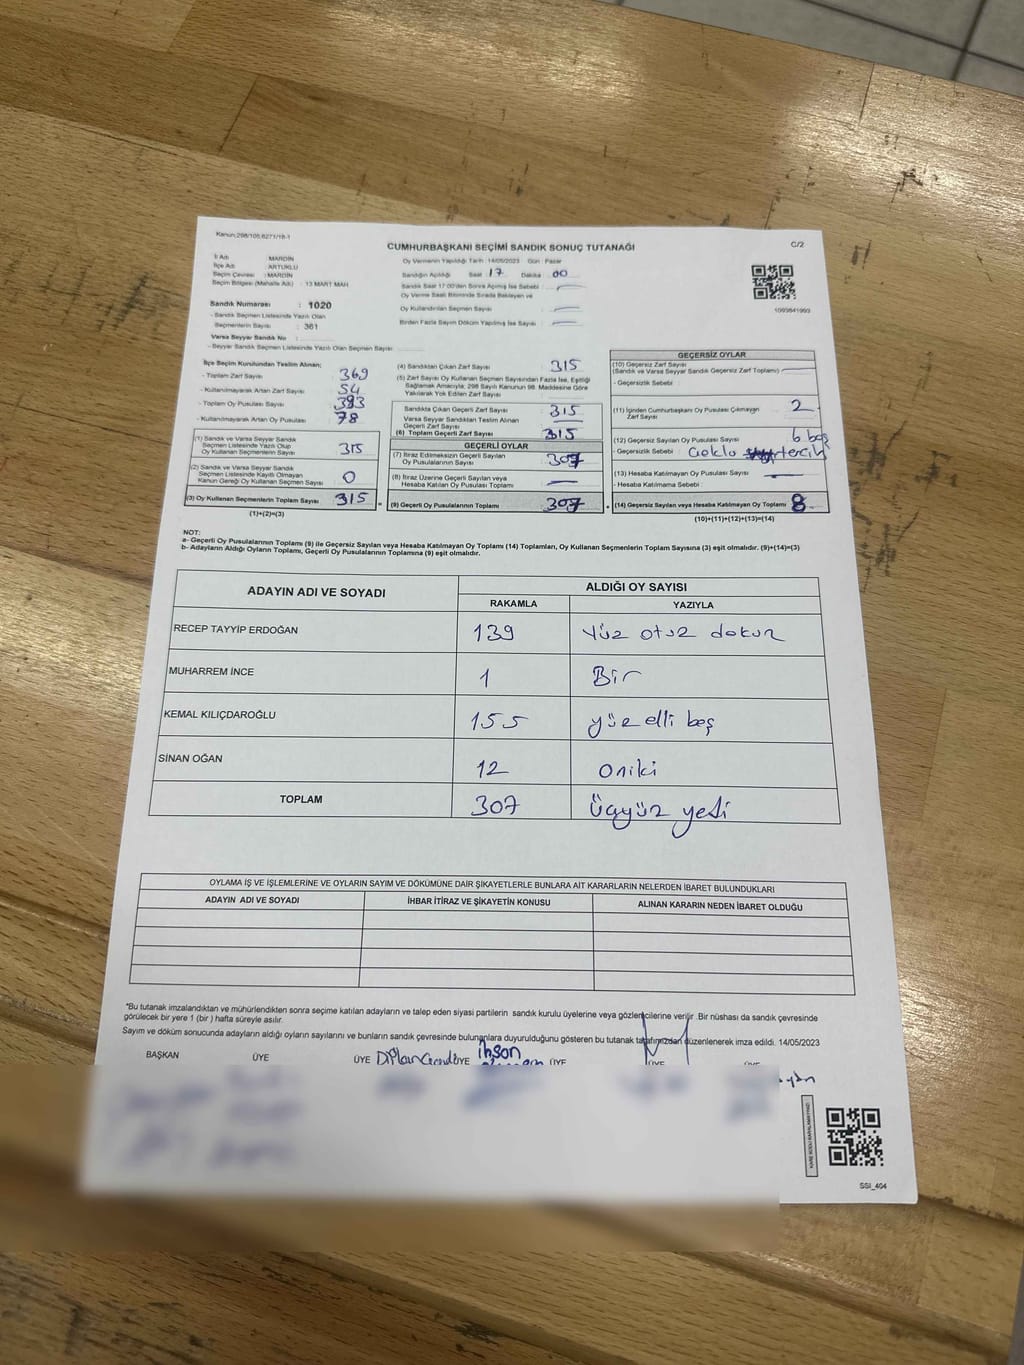 Kanun:298/105,6271/18-1
C/2
CUMHURBAŞKANI SEÇİMİ SANDIK SONUÇ TUTANAĞI
İl Adı : MARDİN
İlçe Adı : ARTUKLU
Seçim Çevresi : MARDİN
Seçim Bölgesi (Mahalle Adı) : 13 MART MAH
Sandık Numarası : 1020
- Sandık Seçmen Listesinde Yazılı Olan
Seçmenlerin Sayısı : 361
Varsa Seyyar Sandık No :
- Seyyar Sandık Seçmen Listesinde Yazılı Olan Seçmen Sayısı
Oy Vermenin Yapıldığı Tarih : 14/05/2023 Gün : Pazar
Sandığın Açıldığı Saat 17 Dakika 00
Sandık Saat 17:00'den Sonra Açılmış İse Sebebi :
Oy Verme Saati Bitiminde Sırada Bekleyen ve
Oy Kullandırılan Seçmen Sayısı :
Birden Fazla Sayım Döküm Yapılmış İse Sayısı :
1093841993
İlçe Seçim Kurulundan Teslim Alınan;
- Toplam Zarf Sayısı : 369
- Kullanılmayarak Artan Zarf Sayısı : 54
- Toplam Oy Pusulası : 393
- Kullanılmayarak Artan Oy Pusulası : 78
(1) Sandık ve Varsa Seyyar Sandık
Seçmen Listesinde Yazılı Olup
Oy Kullanan Seçmen Sayısı 315
(2) Sandık ve Varsa Seyyar Sandık
Seçmen Listesinde Kayıtlı Olmayan
Kanun Gereği Oy Kullanan Seçmen Sayısı 0
(3) Oy Kullanan Seçmenlerin Toplam Sayısı 315
(1)+(2)=(3)
(4) Sandıktan Çıkan Zarf Sayısı : 315
(5) Zarf Sayısı Oy Kullanan Seçmen Sayısından Fazla İse, Eşitliği
Sağlamak Amacıyla; 298 Sayılı Kanunun 98. Maddesine Göre
Yakılarak Yok Edilen Zarf Sayısı :
Sandıkta Çıkan Geçerli Zarf Sayısı : 315
Varsa Seyyar Sandıktan Teslim Alınan
Geçerli Zarf Sayısı :
(6) Toplam Geçerli Zarf Sayısı : 315
GEÇERLİ OYLAR
(7) İtiraz Edilmeksizin Geçerli Sayılan
Oy Pusulalarının Sayısı : 307
(8) İtiraz Üzerine Geçerli Sayılan veya
Hesaba Katılan Oy Pusulası Toplamı :
(9) Geçerli Oy Pusulalarının Toplamı : 307
GEÇERSİZ OYLAR
(10) Geçersiz Zarf Sayısı
(Sandık ve Varsa Seyyar Sandık Geçersiz Zarf Toplamı)
- Geçersizlik Sebebi :
(11) İçinden Cumhurbaşkanı Oy Pusulası Çıkmayan
Zarf Sayısı : 2
(12) Geçersiz Sayılan Oy Pusulası Sayısı : 6 boş
- Geçersizlik Sebebi : Çoklu tercih
(13) Hesaba Katılmayan Oy Pusulası Sayısı :
- Hesaba Katılmama Sebebi :
(14) Geçersiz Sayılan veya Hesaba Katılmayan Oy Toplamı : 8
(10)+(11)+(12)+(13)=(14)
NOT:
a- Geçerli Oy Pusulalarının Toplamı (9) ile Geçersiz Sayılan veya Hesaba Katılmayan Oy Toplamı (14) Toplamları, Oy Kullanan Seçmenlerin Toplam Sayısına (3) eşit olmalıdır. (9)+(14)=(3)
b- Adayların Aldığı Oyların Toplamı, Geçerli Oy Pusulalarının Toplamına (9) eşit olmalıdır.
ADAYIN ADI VE SOYADI
ALDIĞI OY SAYISI
RAKAMLA YAZIYLA
RECEP TAYYİP ERDOĞAN 139 Yüz otuz dokuz
MUHARREM İNCE 1 Bir
KEMAL KILIÇDAROĞLU 155 yüz elli beş
SİNAN OĞAN 12 oniki
TOPLAM 307 üçyüz yedi
OYLAMA İŞ VE İŞLEMLERİNE VE OYLARIN SAYIM VE DÖKÜMÜNE DAİR ŞİKAYETLERLE BUNLARA AİT KARARLARIN NELERDEN İBARET BULUNDUKLARI
ADAYIN ADI VE SOYADI İHBAR İTİRAZ VE ŞİKAYETİN KONUSU ALINAN KARARIN NEDEN İBARET OLDUĞU
*Bu tutanak imzalandıktan ve mühürlendikten sonra seçime katılan adayların ve talep eden siyasi partilerin sandık kurulu üyelerine veya gözlemcilerine verilir. Bir nüshası da sandık çevresinde
görülecek bir yere 1 (bir ) hafta süreyle asılır.
Sayım ve döküm sonucunda adayların aldığı oyların sayılarını ve bunların sandık çevresinde bulunanlara duyurulduğunu gösteren bu tutanak tarafımızdan düzenlenerek imza edildi. 14/05/2023
BAŞKAN ÜYE ÜYE ÜYE ÜYE ÜYE ÜYE
SSI_404